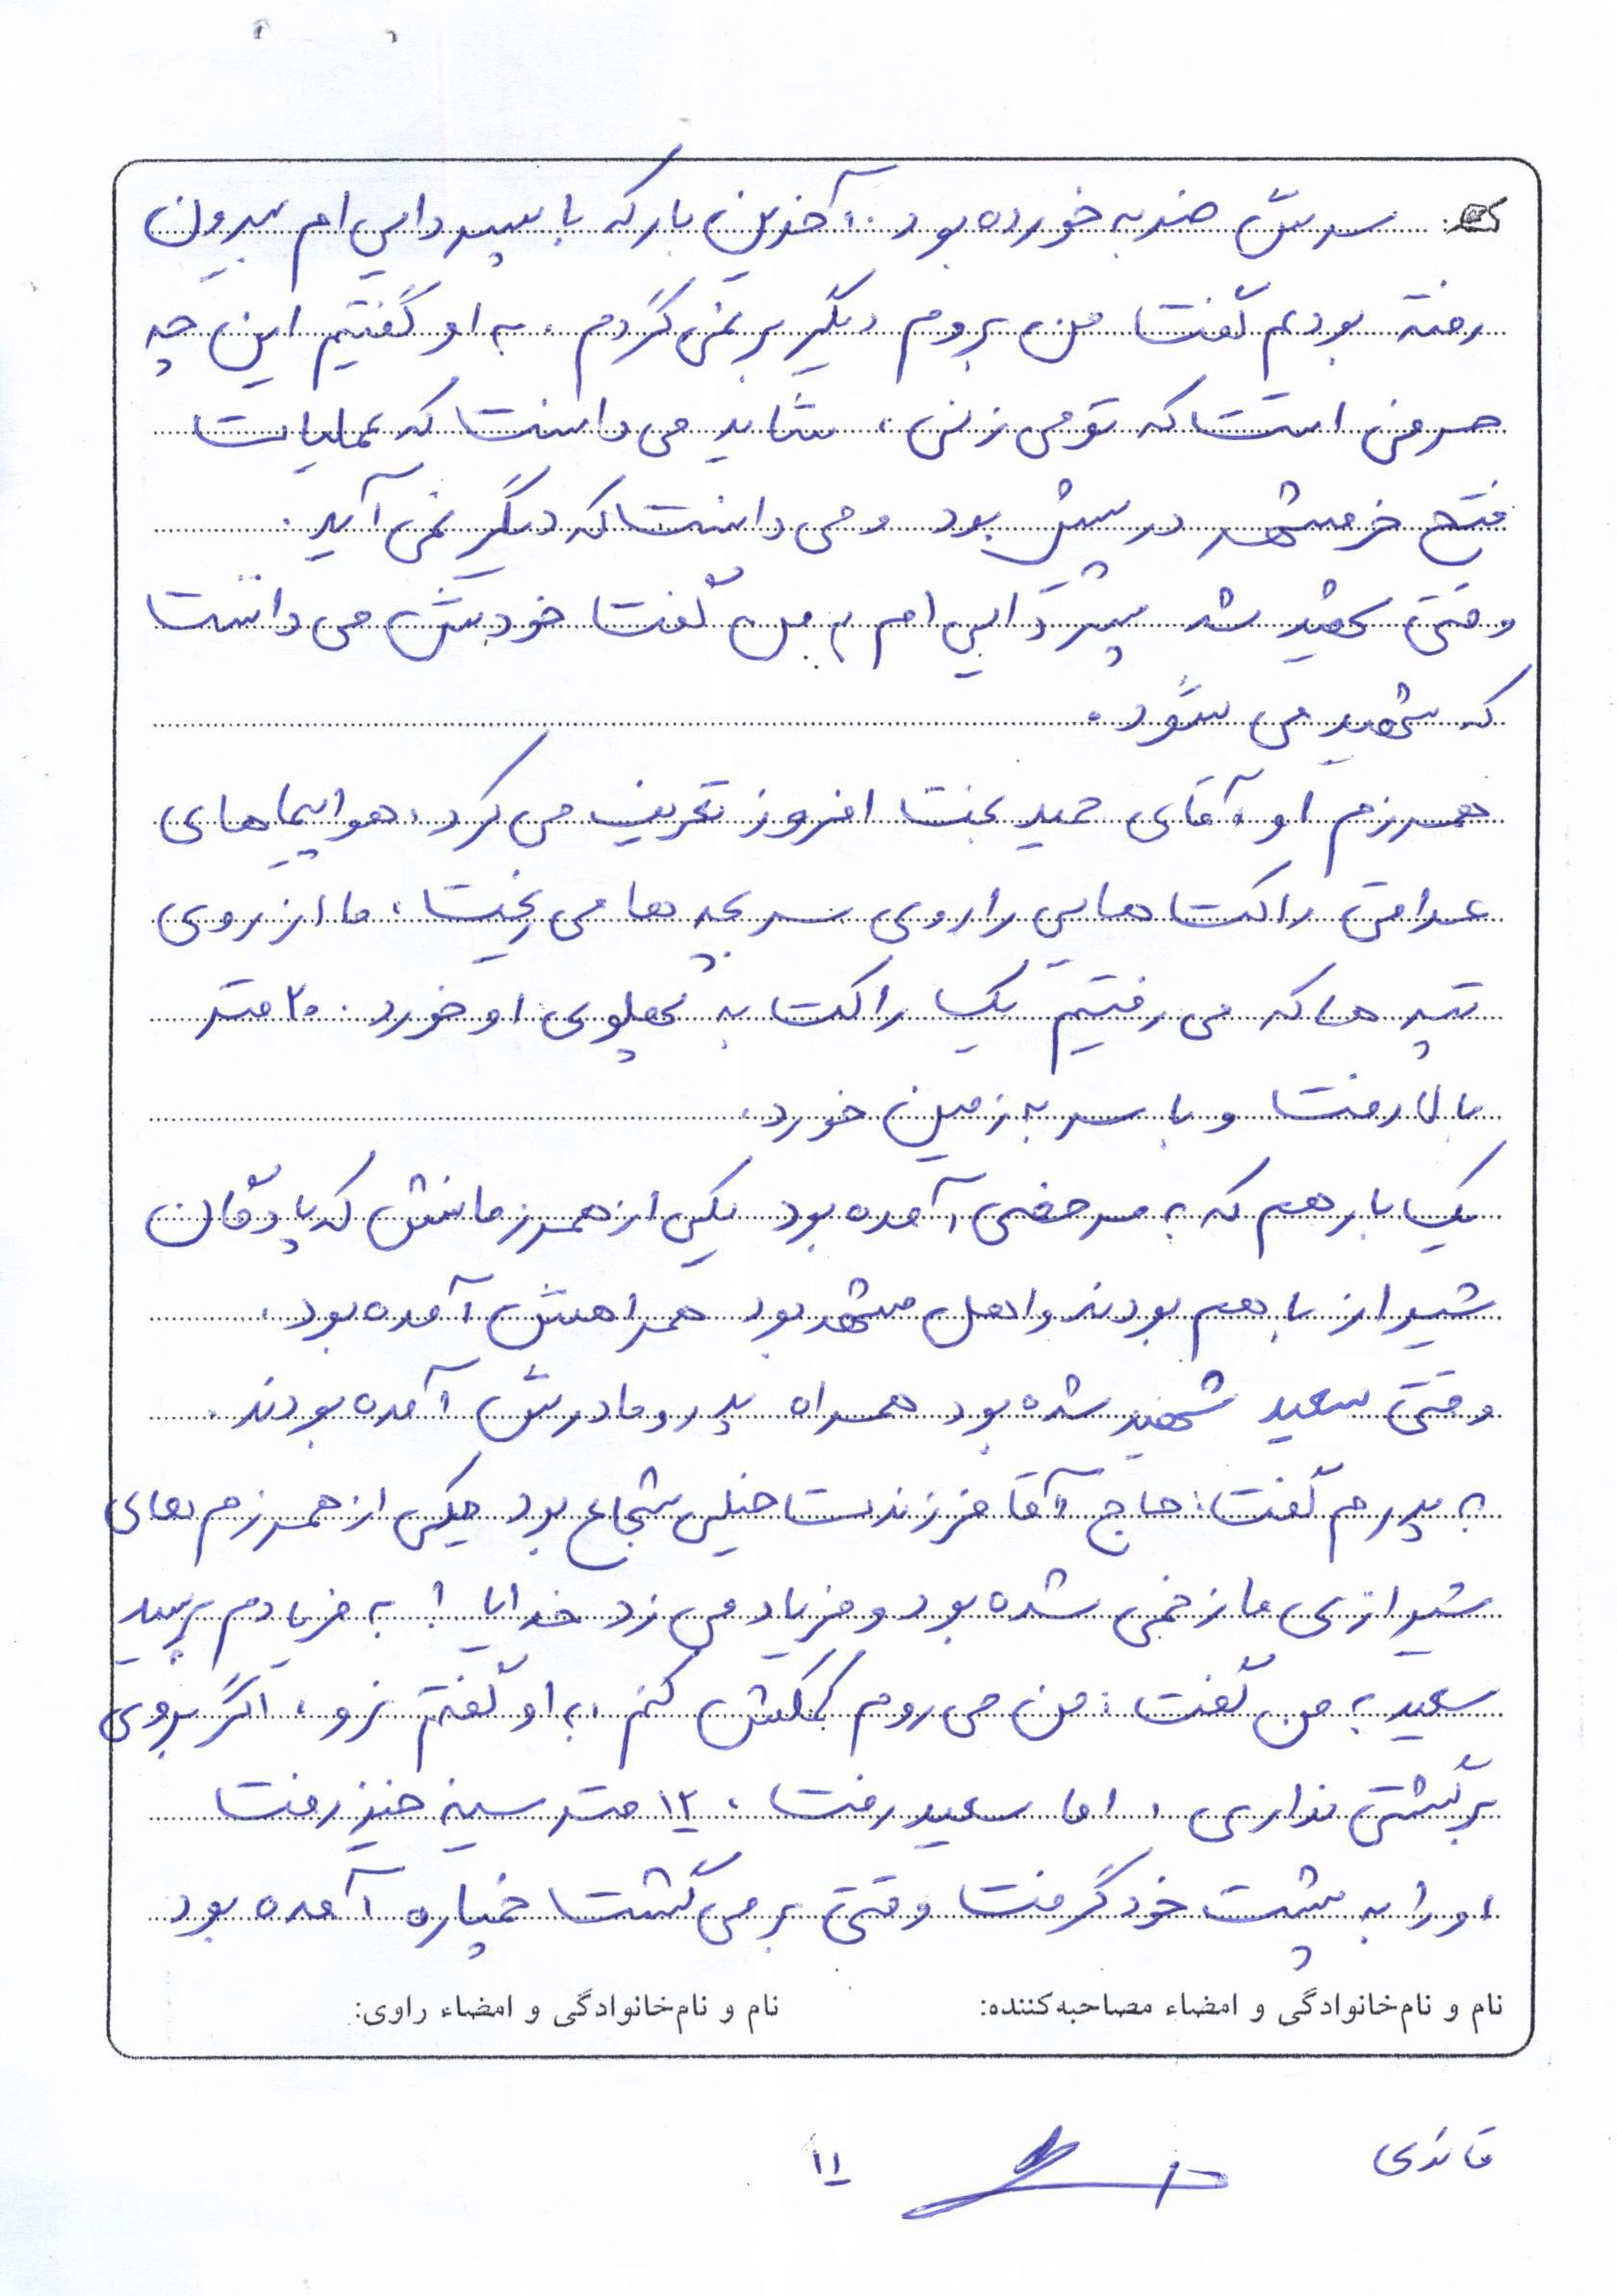 سرش ضربه خورده بود. آخرین بار که با پسر دایی ام بیرون
رفته بودیم گفت من بروم دیگر بر نمی گردم. به او گفتیم این چه
حرفی است که تو می زنی، شاید می دانست که عملیات
فتح خرمشهر در پیش بود و می دانست که دیگر نمی آید.
وقتی شهید شد پسر دایی ام به من گفت خودش می دانست
که شهید می شود.
همرزم او آقای حمید بخت افروز تعریف می کرد، هواپیماهای
عراقی راکت هایی را روی سر بچه ها می ریخت، ما از روی
تپه ها که می رفتیم یک راکت به پهلوی او خورد. ۲۰ متر
بالا رفت و با سر به زمین خورد.
یک بار هم که به مرخصی آمده بود یکی از همرزمانش که پادگان
شیراز با هم بودند و اهل مشهد بود همراهش آمده بود.
وقتی سعید شهید شده بود همراه پدر و مادرش آمده بودند.
به پدرم گفت: حاج آقا فرزندت خیلی شجاع بود یکی از همرزم های
شیرازی ما زخمی شده بود و فریاد می زد خدایا! به فریادم برسید
سعید به من گفت: من می روم کمکش کنم، به او گفتم نرو، اگر بروی
برگشتی نداری، اما سعید رفت، ۱۲ متر سینه خیز رفت
او را به پشت خود گرفت وقتی بر می گشت خمپاره آمده بود
نام و نام‌خانوادگی و امضاء مصاحبه‌کننده: نام و نام‌خانوادگی و امضاء راوی:
۱۱